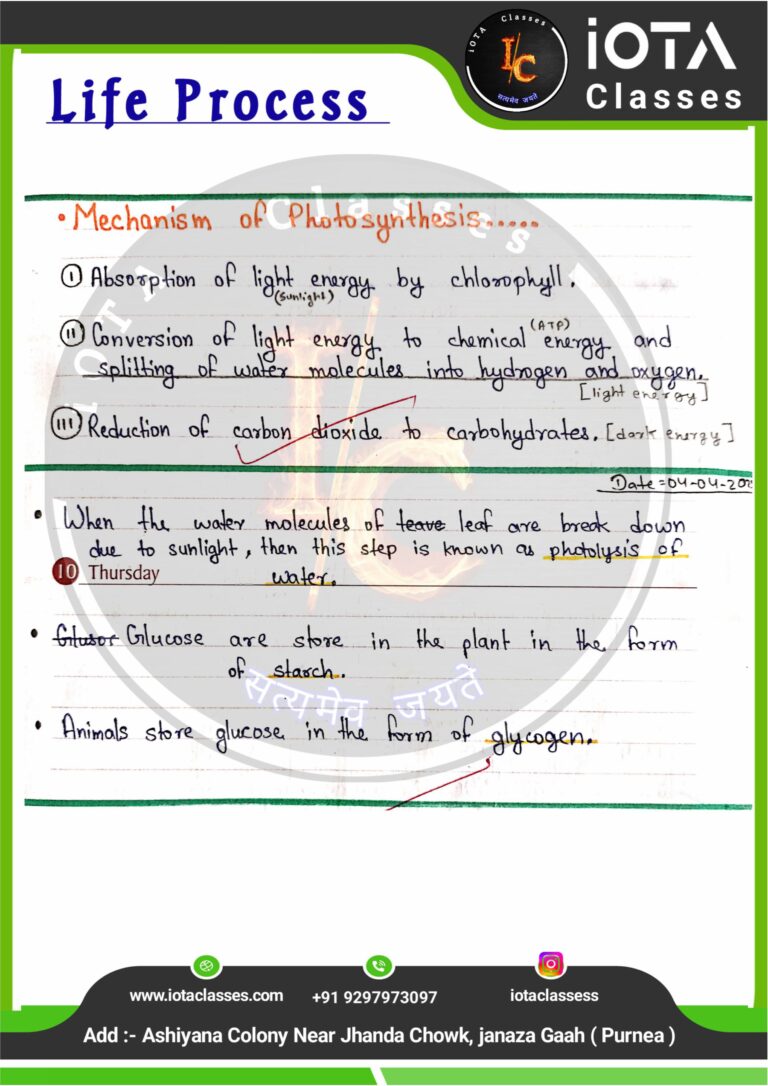 iOTA Classes
I/C
सत्यमेव जयते
iOTA
Classes
Life Process
iOTA Classes
• Mechanism of Photosynthesis.....
I Absorption of light energy by chlorophyll.
(sunlight)
(ATP)
II Conversion of light energy to chemical energy and
splitting of water molecules into hydrogen and oxygen.
[light energy]
III Reduction of carbon dioxide to carbohydrates. [dark energy]
I/C
Date = 04-04-202
• When the water molecules of leave leaf are break down
due to sunlight, then this step is known as photolysis of
10 Thursday water.
• Glusor Glucose are store in the plant in the form
of starch.
सत्यमेव जयते
• Animals store glucose in the form of glycogen.
www.iotaclasses.com
+91 9297973097
iotaclassess
Add :- Ashiyana Colony Near Jhanda Chowk, janaza Gaah ( Purnea )